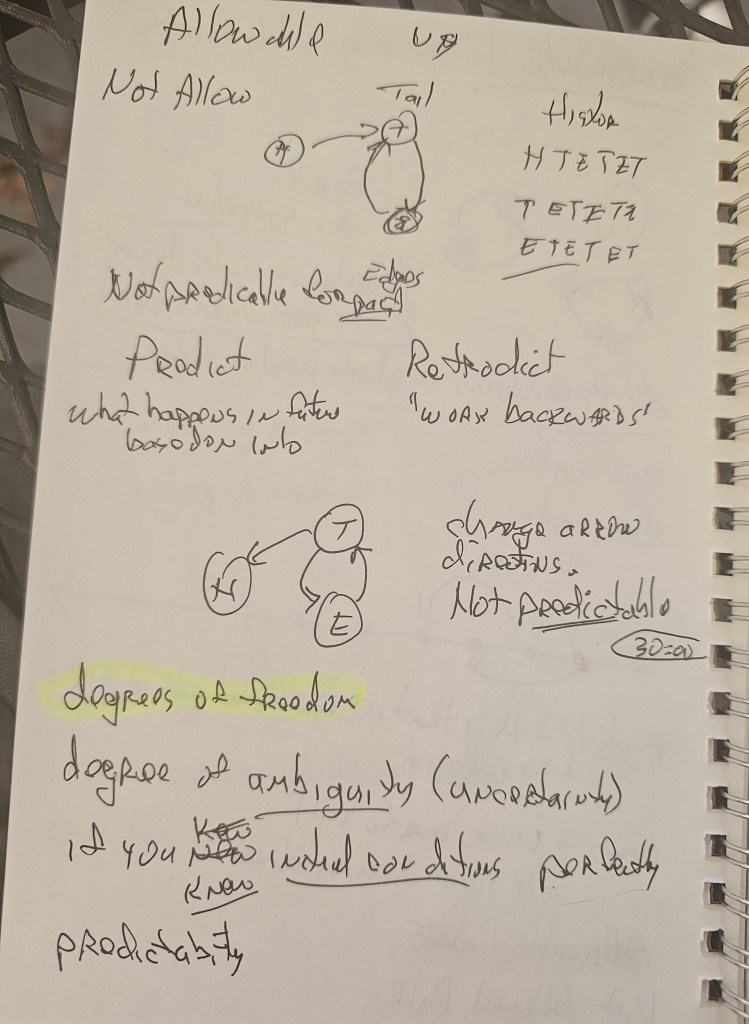 Allowable
Not Allow
Tail
H
T
E
H T E T E T
T E T E T
E T E T E T
Not predicable for past
Edges
Predict
Retrodict
what happens in future
based on info
"work backwards"
T
H
E
change arrow
directins.
Not predictable
30:00
degrees of freedom
degree of ambiguity (uncertainty)
if you know initial conditions perfectly
predictabity